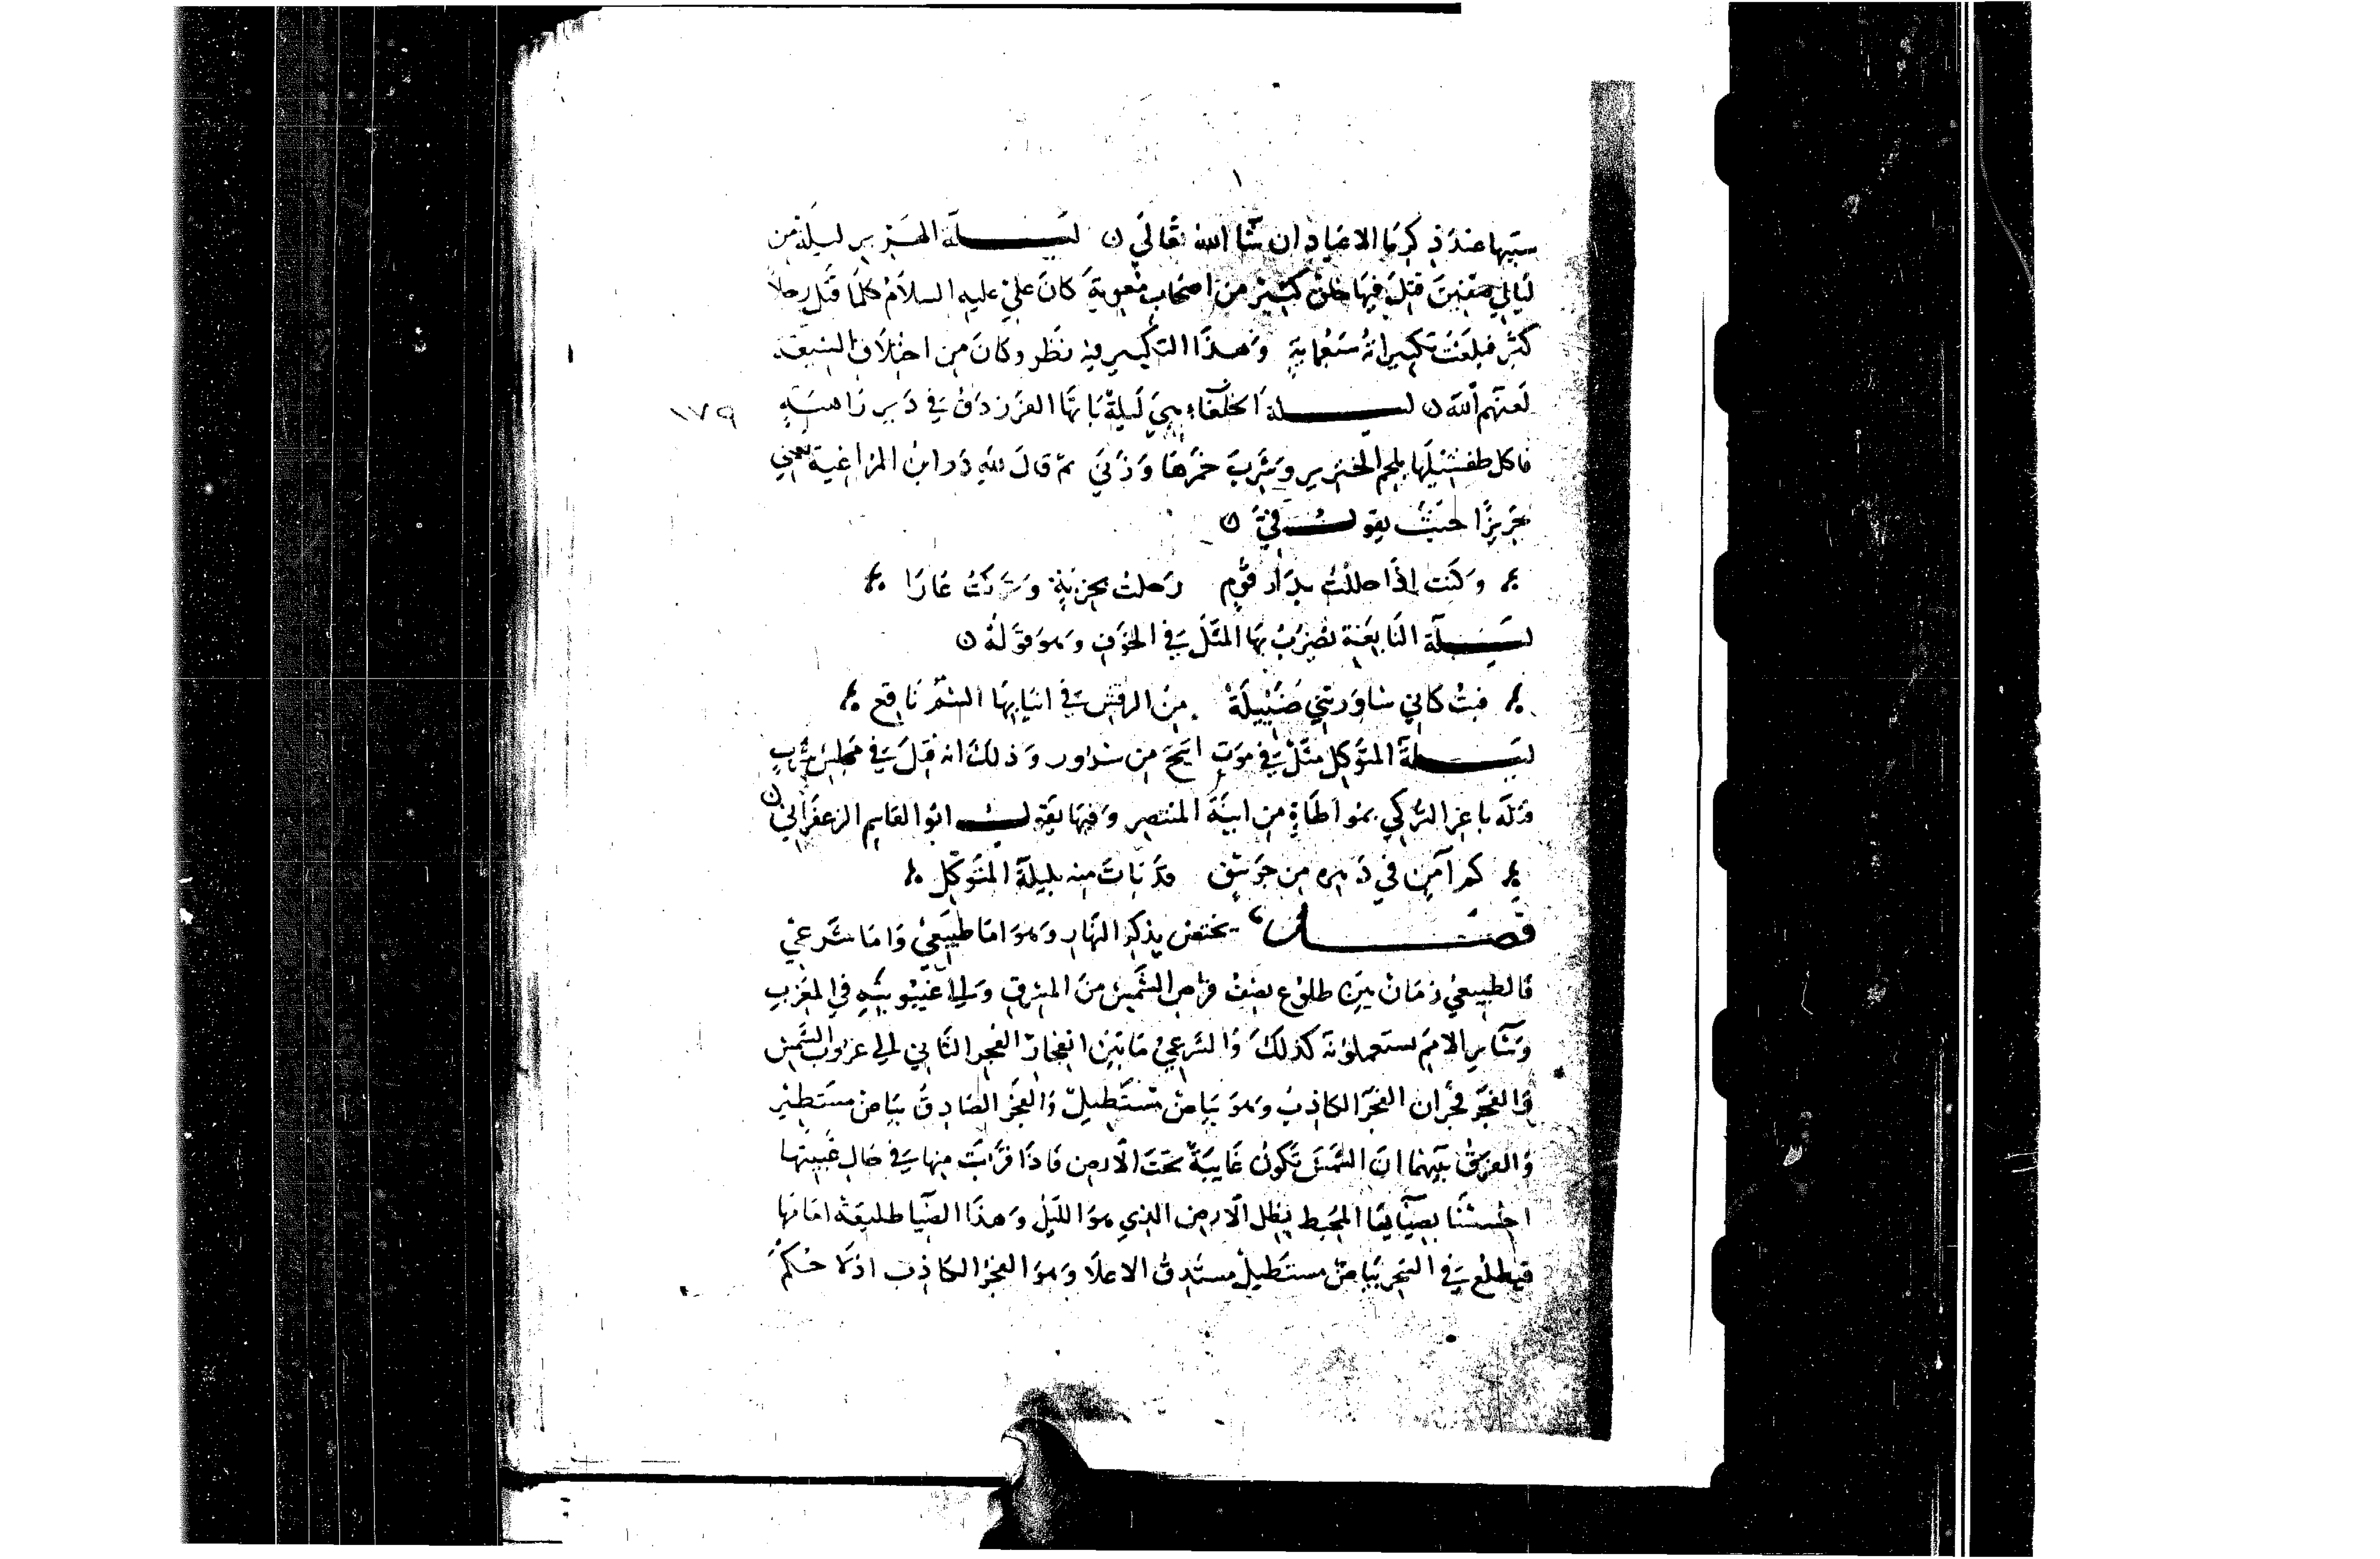 ١
سببها عند ذكرنا الاعياد ان شا الله تعالى ليلة الهرير ليلة من
ليالي صفين قتل فيها خلق كثير من اصحاب معوية كان علي عليه السلام كلما قتل رجلا
كبر فبلغت تكبيراته سبعماية وهذا التكبير فيه نظر وكان من اختلاق
لعنهم الله ليلة هي ليلة باتها الفرزدق في دير راهبة
فاكل طفشيلها بلحم الخنزير وشرب خمرها وزنى ثم قال لله در ابن المراغية يعني
جريرا حيث يقول في
وكنت اذا حللت بدار قوم رحلت بخزية وتركت عارا
ليلة النابغة يضرب بها المثل في الخوف وهو قوله
فبت كاني ساورتني ضئيلة من الرقش في انيابها السم ناقع
ليلة المتوكل مثل في موت من وذلك انه قتل في مجلس شراب
قتله باغر التركي بمواطاة من ابنه المنتصر وفيها يقول ابو القاسم الزعفراني
كم آمن في دهره من جوشق قد بات منه بليلة المتوكل
فصل يختص بذكر النهار وهو اما طبيعي واما شرعي
فالطبيعي زمان بين طلوع نصف قرص الشمس من المشرق والى غيبوبته في المغرب
وسائر الامم تستعملونه كذلك والشرعي ما بين انفجار الفجر الثاني الى غروب الشمس
والفجر فجران الفجر الكاذب وهو بياض مستطيل والفجر الصادق بياض مستطير
والفرق بينهما ان الشمس تكون غايبة تحت الارض فاذا قربت منها في حال غيبتها
احسسنا بضيايها المحيط بظل الارض الذي هو الليل وهذا الضيا طليعة امامها
فيطلع في السحر بياض مستطيل مستدق الاعلا وهو الفجر الكاذب اذ لا حكم
١٧٩